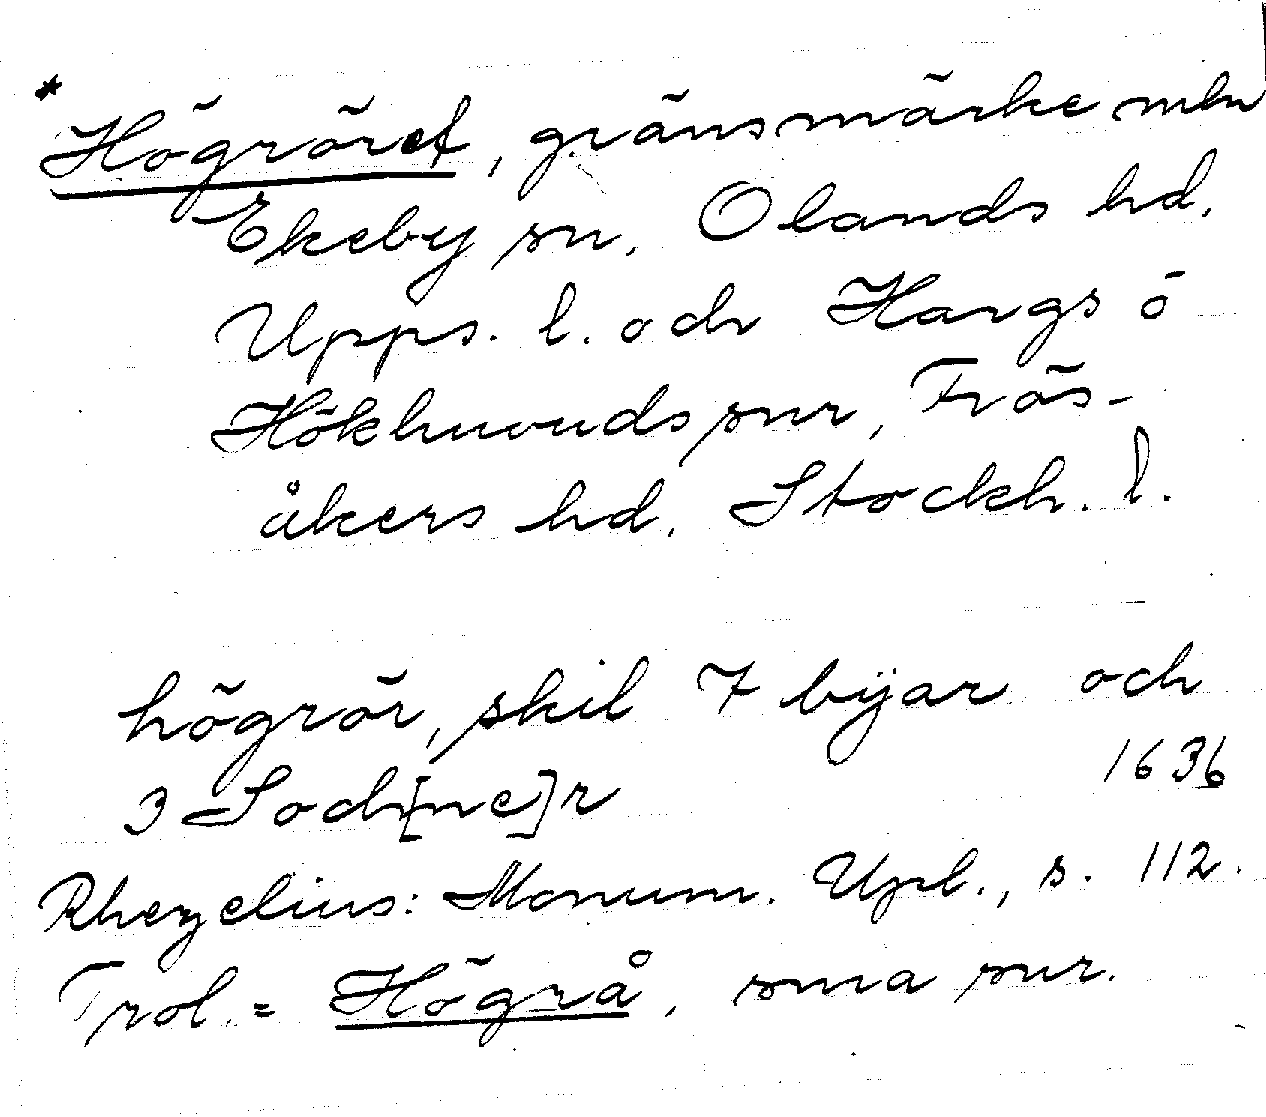 * Högröret, gränsmärke mln
Ekeby sn, Olands hd,
Upps. l. och Hargs o
Hökhuvuds snr, Frös-
åkers hd, Stockh. l.
högrör, skil 7 byar och
3 Soch[ne]r 1636
Rhezelius: Monum. Upl., s. 112.
Trol. = Högrå, sma snr.